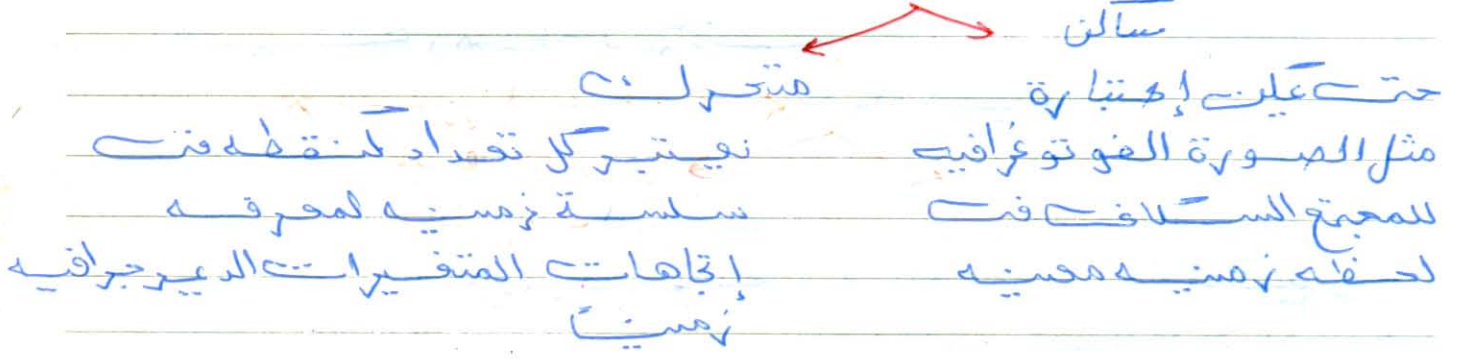 ساكن
متحرك
حتى يمكن إعتبارة
مثل الصورة الفوتوغرافيه
للمجتمع السكانى فى
لحظه زمنيه معينه
نعتبر كل تعداد كنقطه فى
سلسة زمنيه لمعرفه
إتجاهات المتغيرات الديموجرافيه
زمنياً